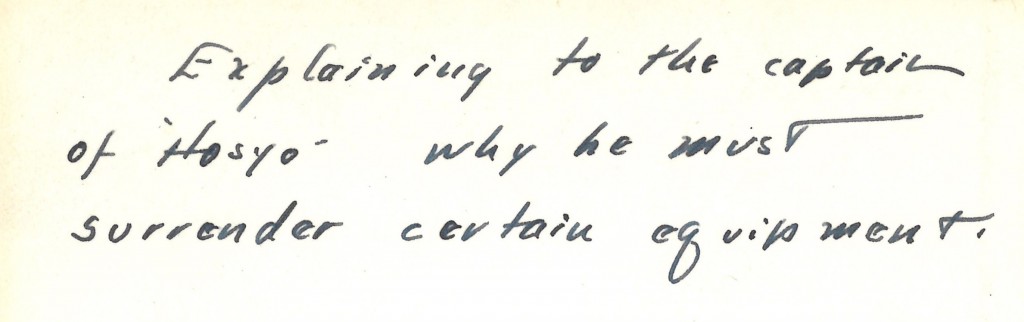 Explaining to the captain
of "Hosyo" why he must
surrender certain equipment.